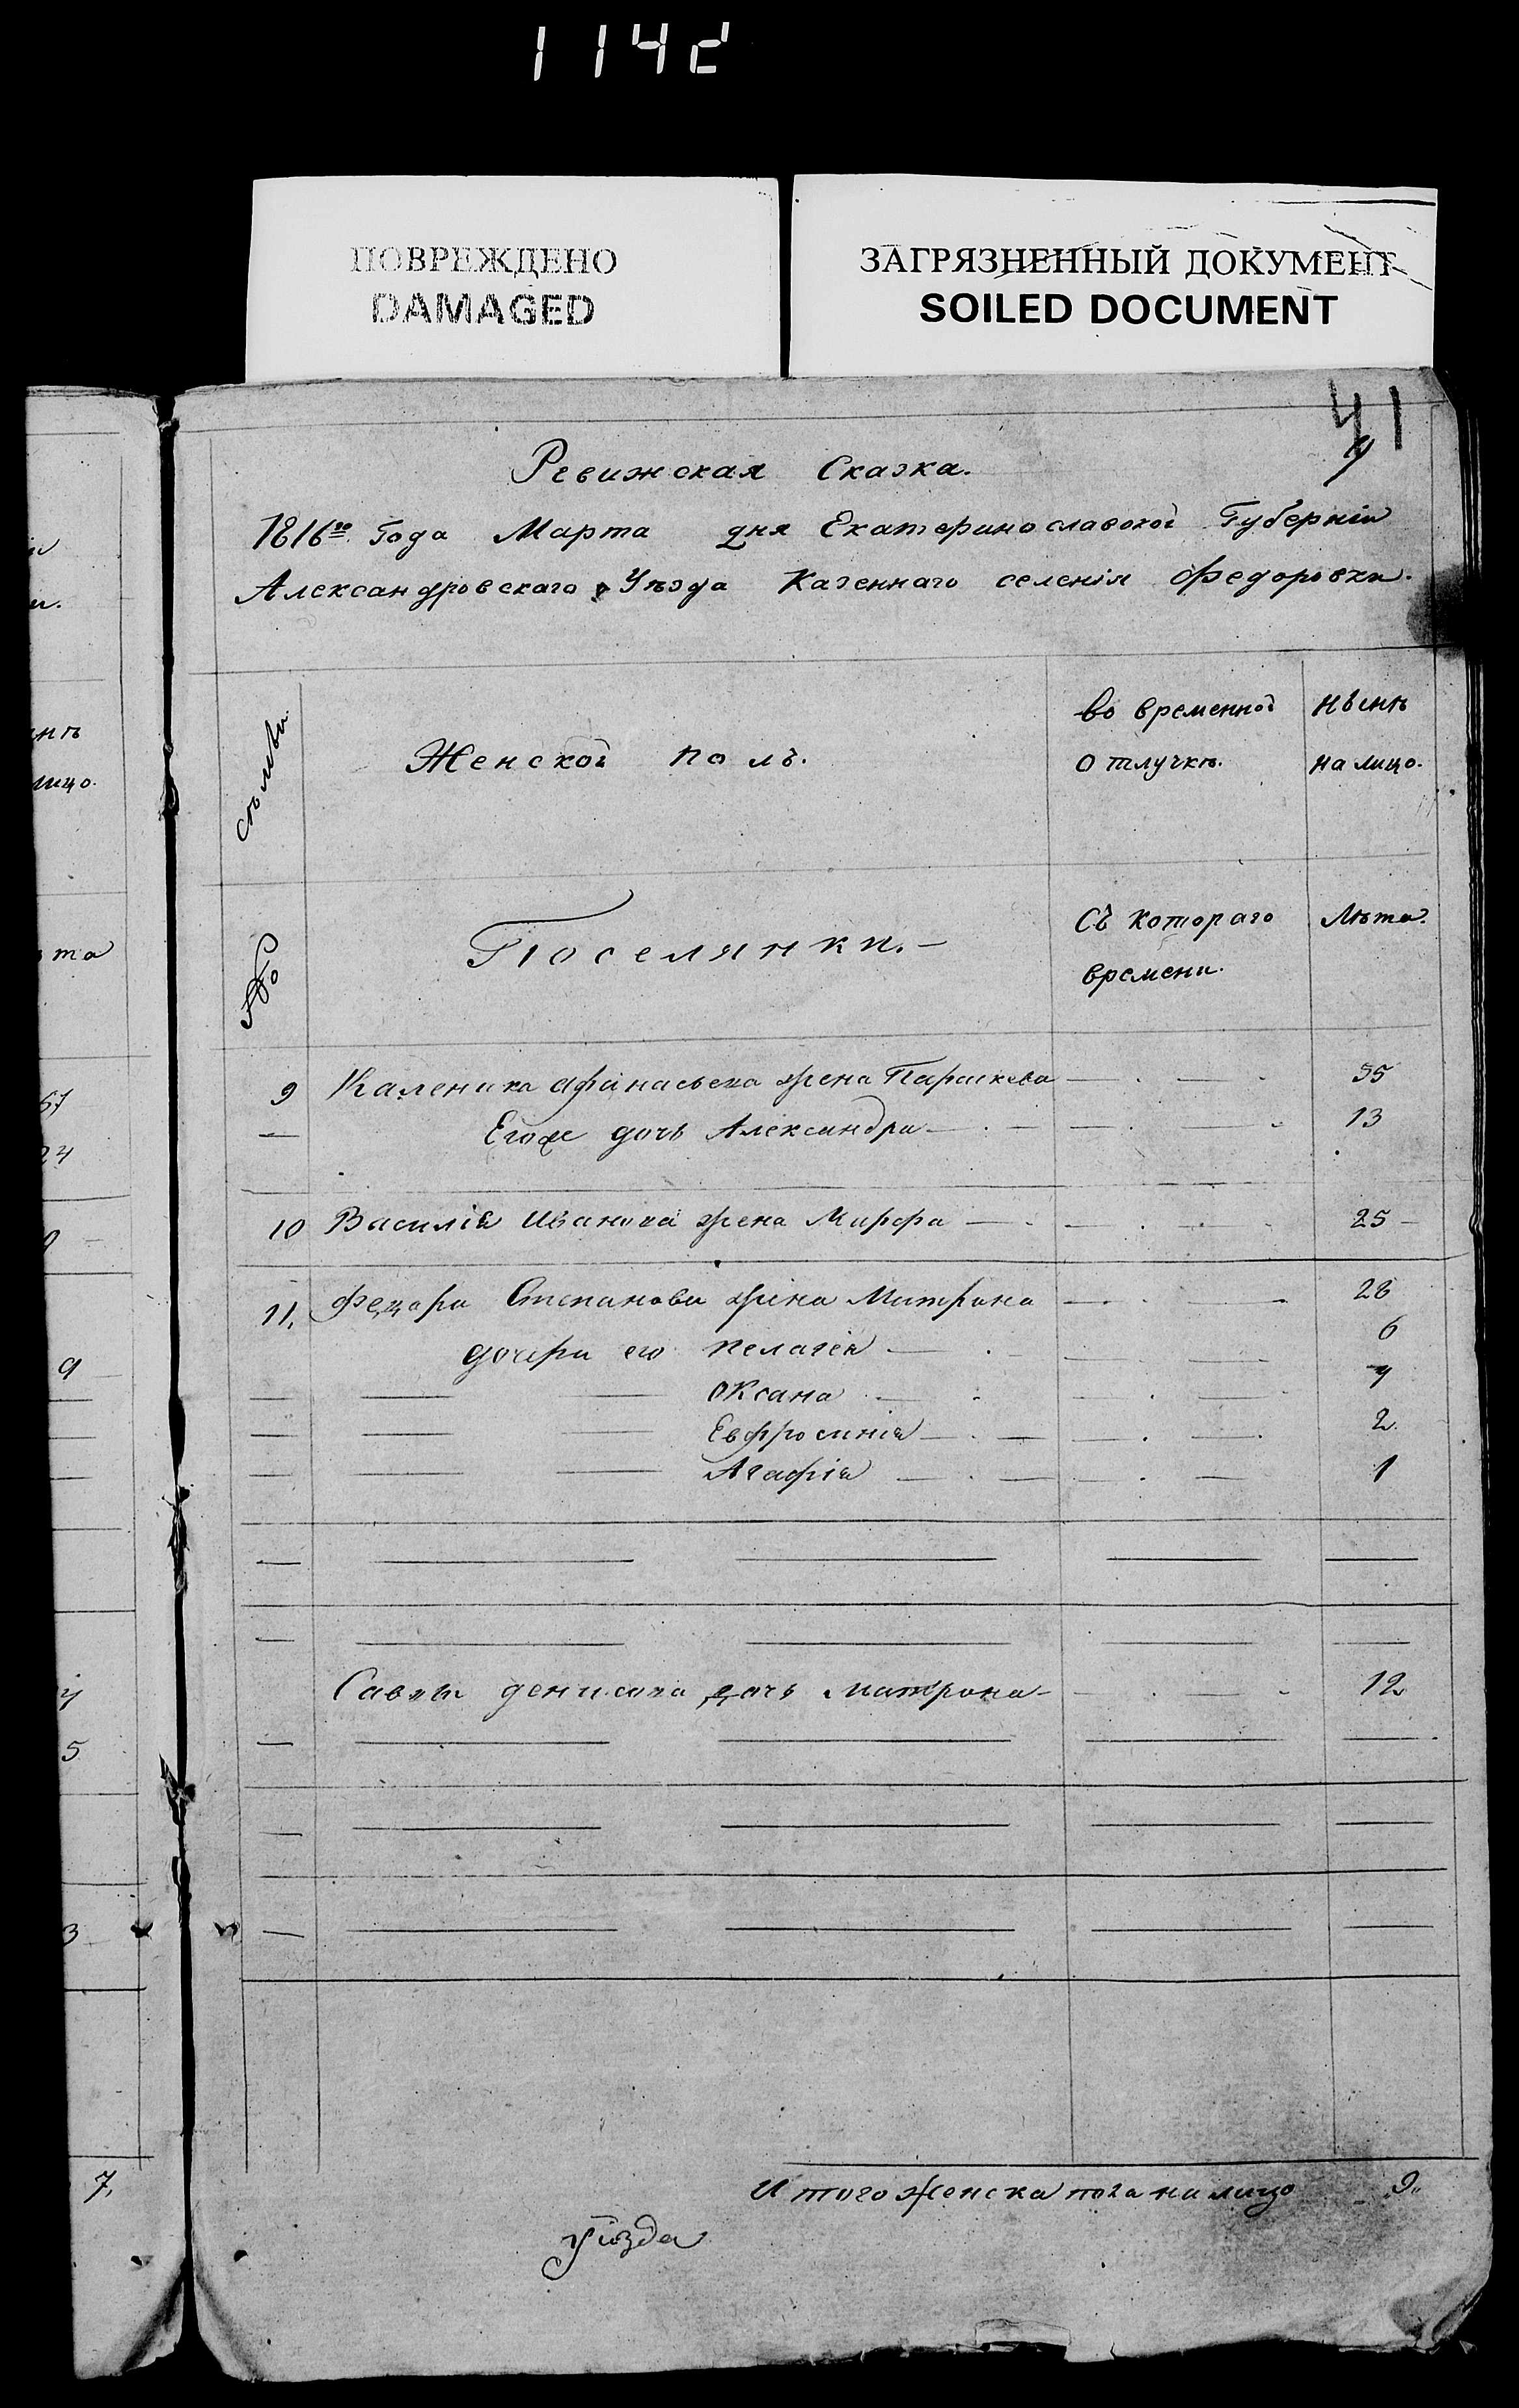 1142
ПОВРЕЖДЕНО
DAMAGED
ЗАГРЯЗНЕННЫЙ ДОКУМЕНТ
SOILED DOCUMENT
41
Ревижская Сказка.
1816го Года Марта дня Екатеринославской Губерніи
Александровскаго Уѣзда Казеннаго селенія Федоровки.
Женской полъ.
во временной отлучкѣ.
нынѣ на лицо.
№
Поселянки.
Съ котораго времени.
Лѣта.
9 Каленика Афанасьева жена Параскева 35
Егоже дочь Александра 13
10 Василія Иванова жена Марфа 25
11. Федора Степанова жена Матрона 28
дочери его Пелагея 6
Оксана 4
Евфросинія 2
Агафія 1
Савы Денисова дочь Матрона 12
Итого Женска пола на лицо 9.
уѣзда
та
24
9
5
3
7.